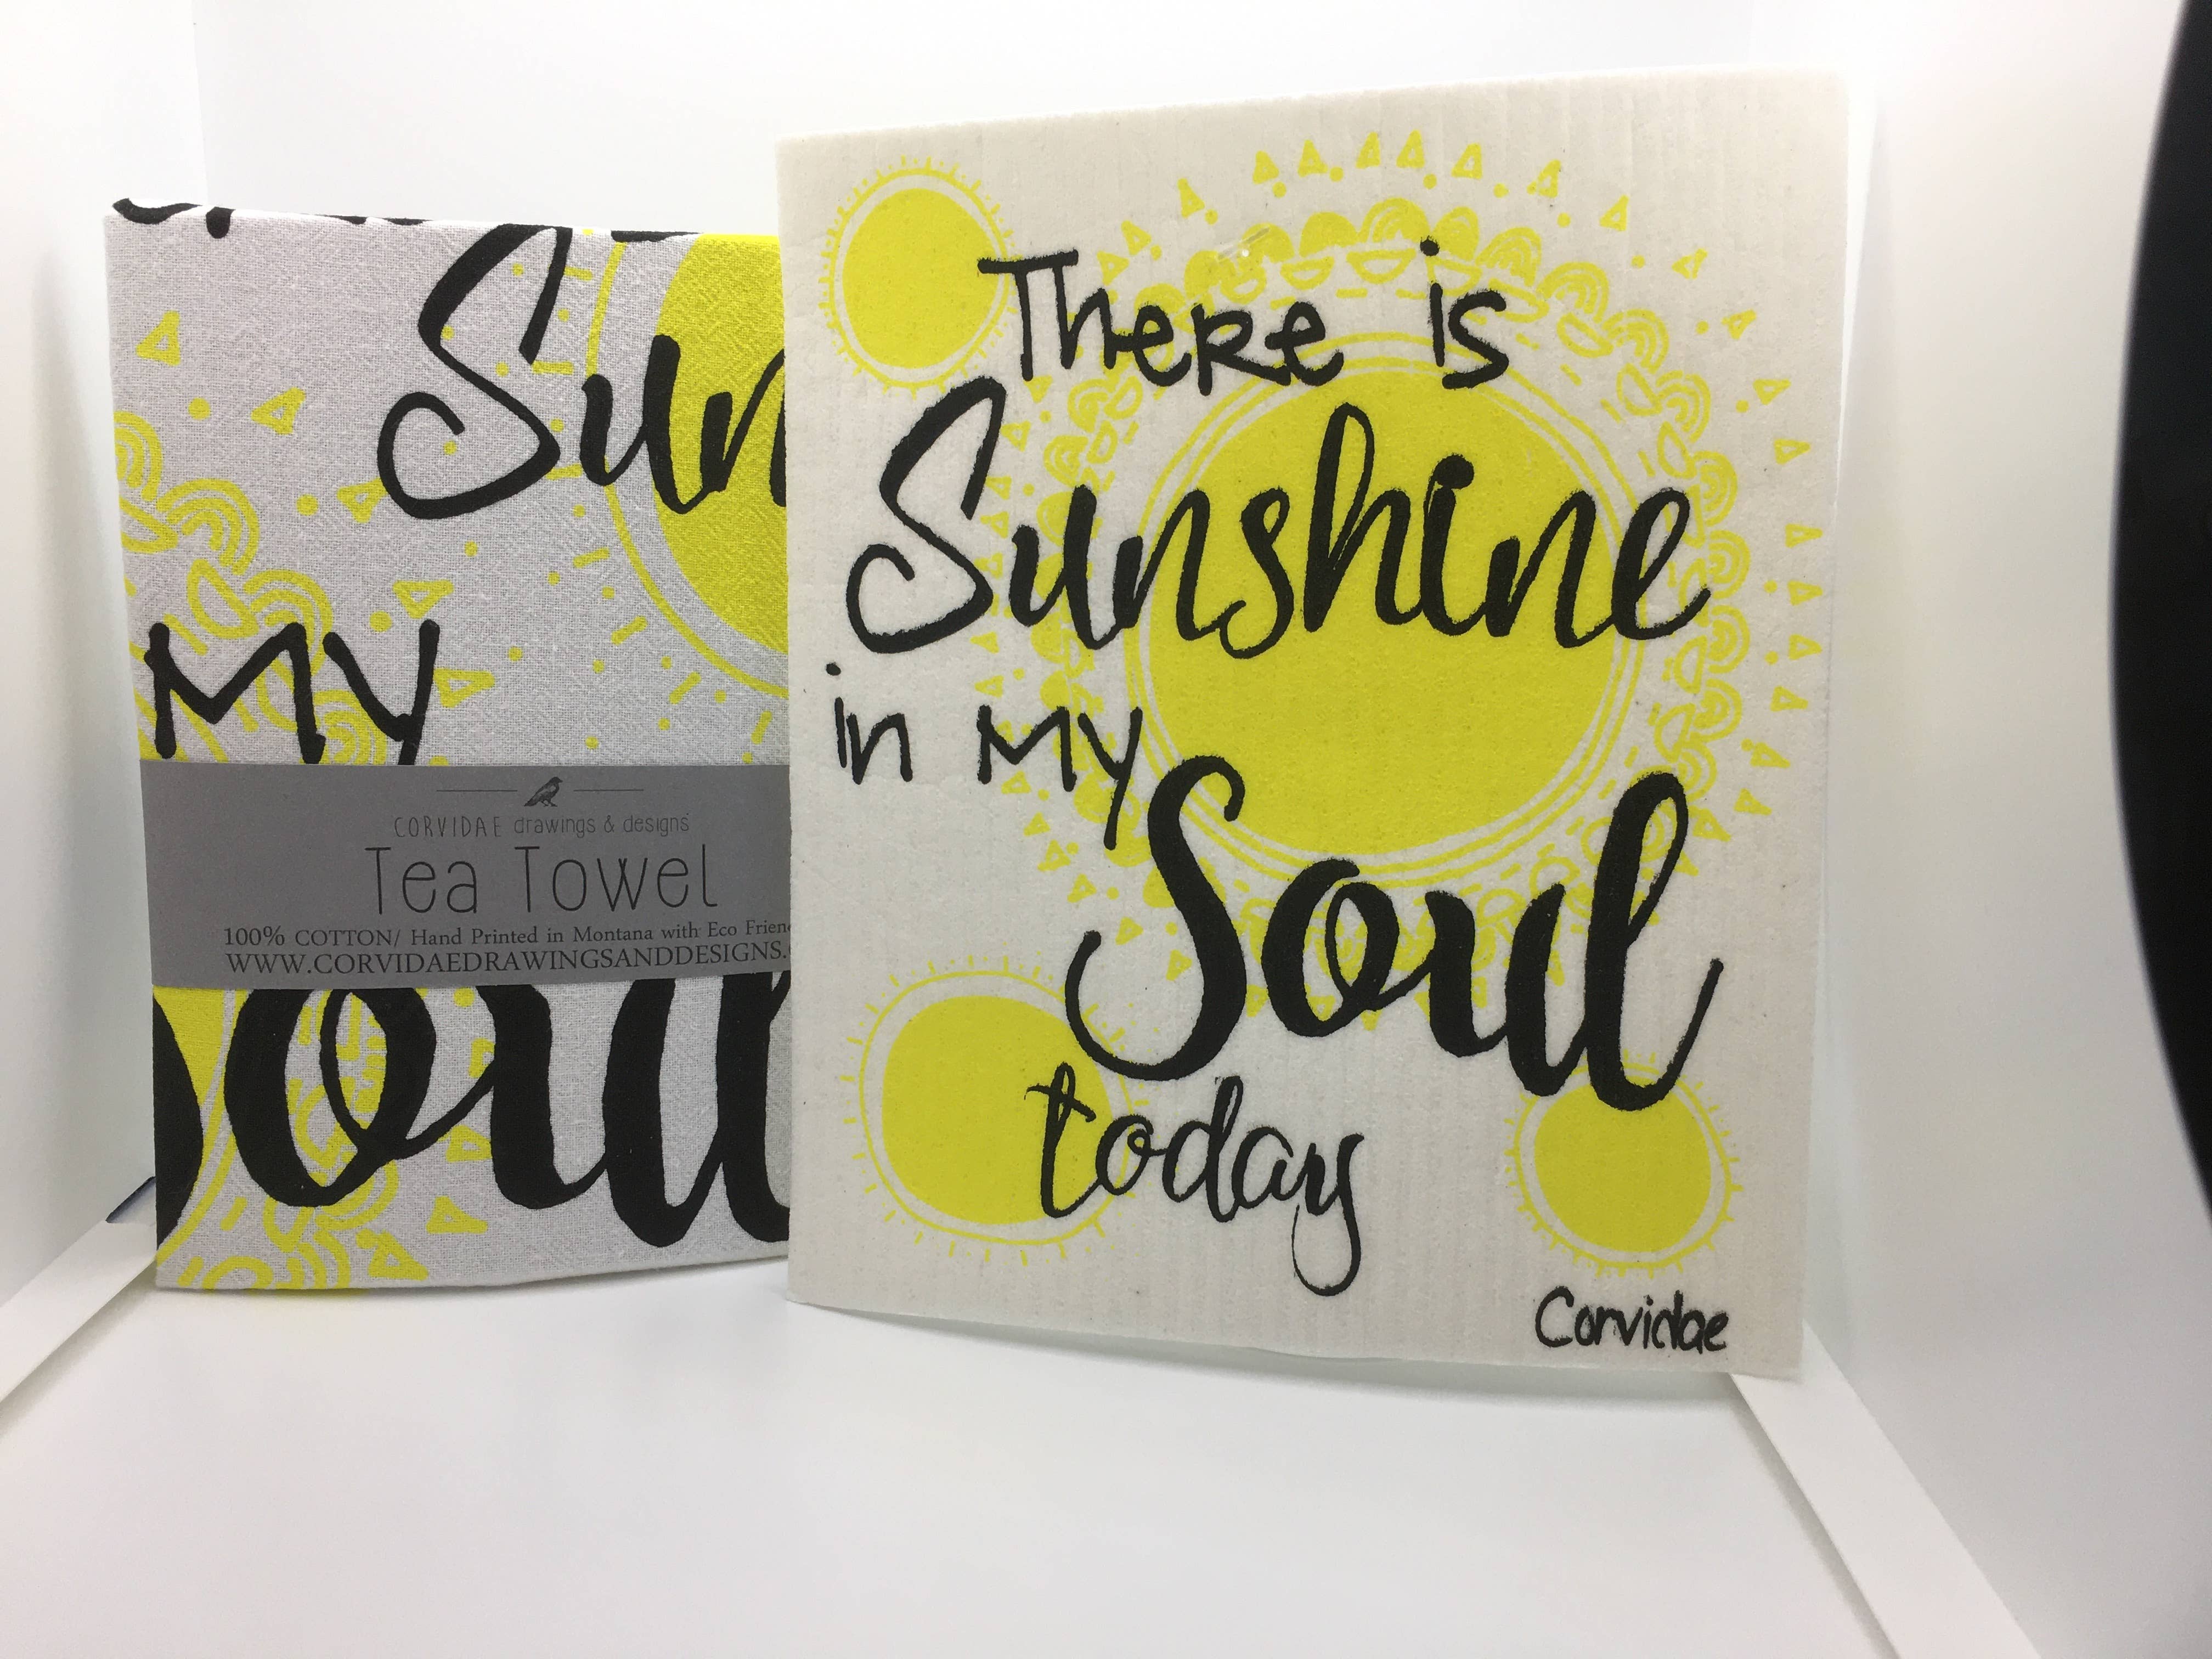 Sun
My
CORVIDAE drawings & designs
Tea Towel
100% COTTON/ Hand Printed in Montana with Eco Frien
WWW.CORVIDAEDRAWINGSANDDESIGNS.
Soul
There is
Sunshine
in My
Soul
today
Corvidae